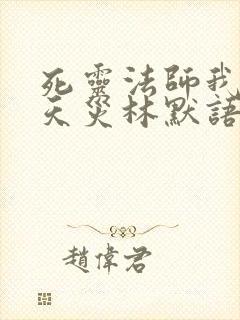 死靈法師我
天災林默語
趙偉君